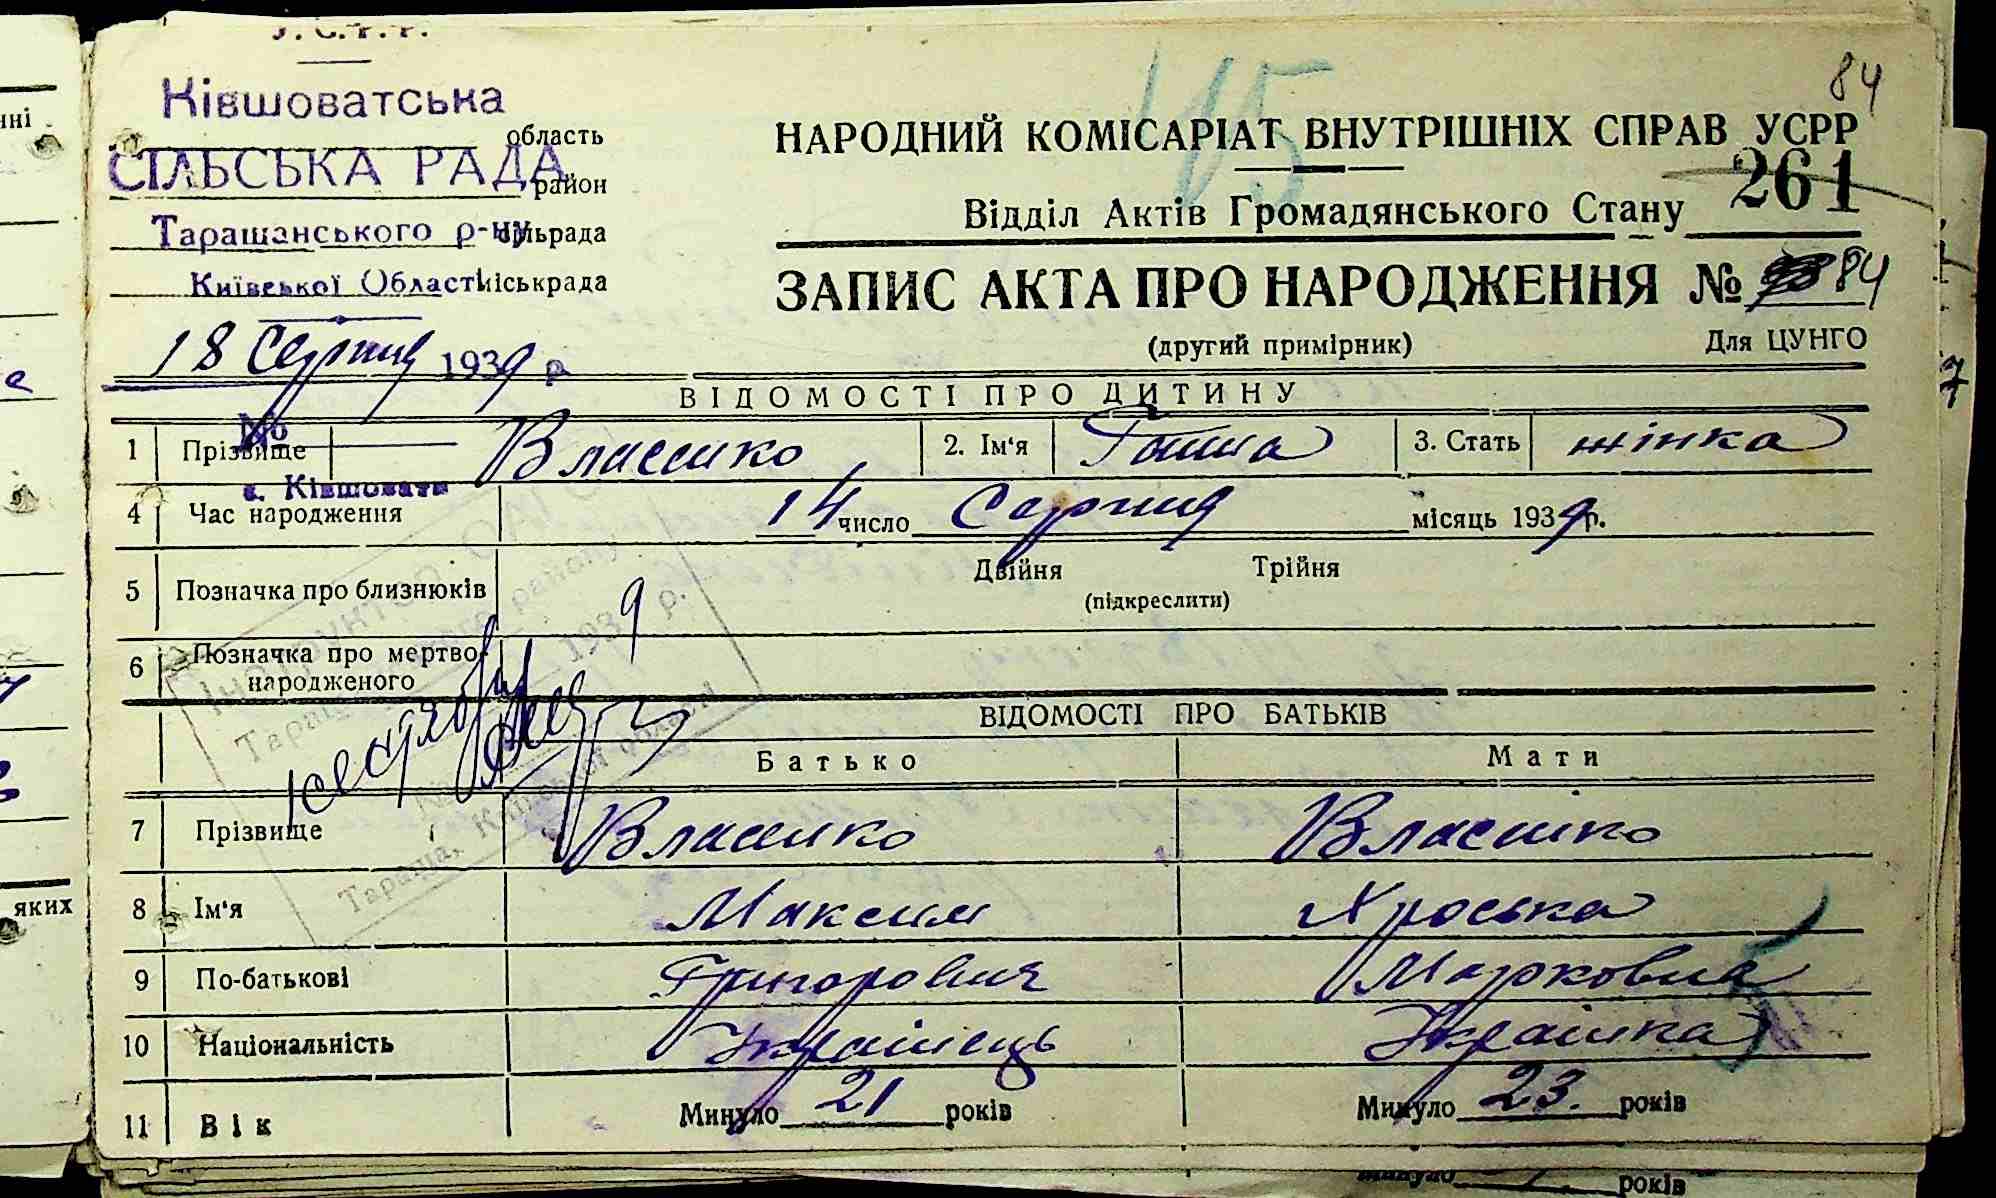 У.С.Р.Р.
Ківшоватська
область
СІЛЬСЬКА РАДА
район
Таращанського р-ну
сільрада
Київської Області
міськрада
18 Серпня 1939 р.
№
с. Ківшовати
84
НАРОДНИЙ КОМІСАРІАТ ВНУТРІШНІХ СПРАВ УСРР
Відділ Актів Громадянського Стану 261
ЗАПИС АКТА ПРО НАРОДЖЕННЯ № 84
(другий примірник) Для ЦУНГО
ВІДОМОСТІ ПРО ДИТИНУ
1 Прізвище Власенко 2. Ім'я Ганна 3. Стать жінка
4 Час народження 14 число Серпня місяць 1939 р.
5 Позначка про близнюків Двійня Трійня
(підкреслити)
6 Позначка про мертво-
народженого
ВІДОМОСТІ ПРО БАТЬКІВ
Батько Мати
7 Прізвище Власенко Власенко
8 Ім'я Максим Хроська
9 По-батькові Григорович Марковна
10 Національність Українець Українка
11 Вік Минуло 21 років Минуло 23. років
яких
років